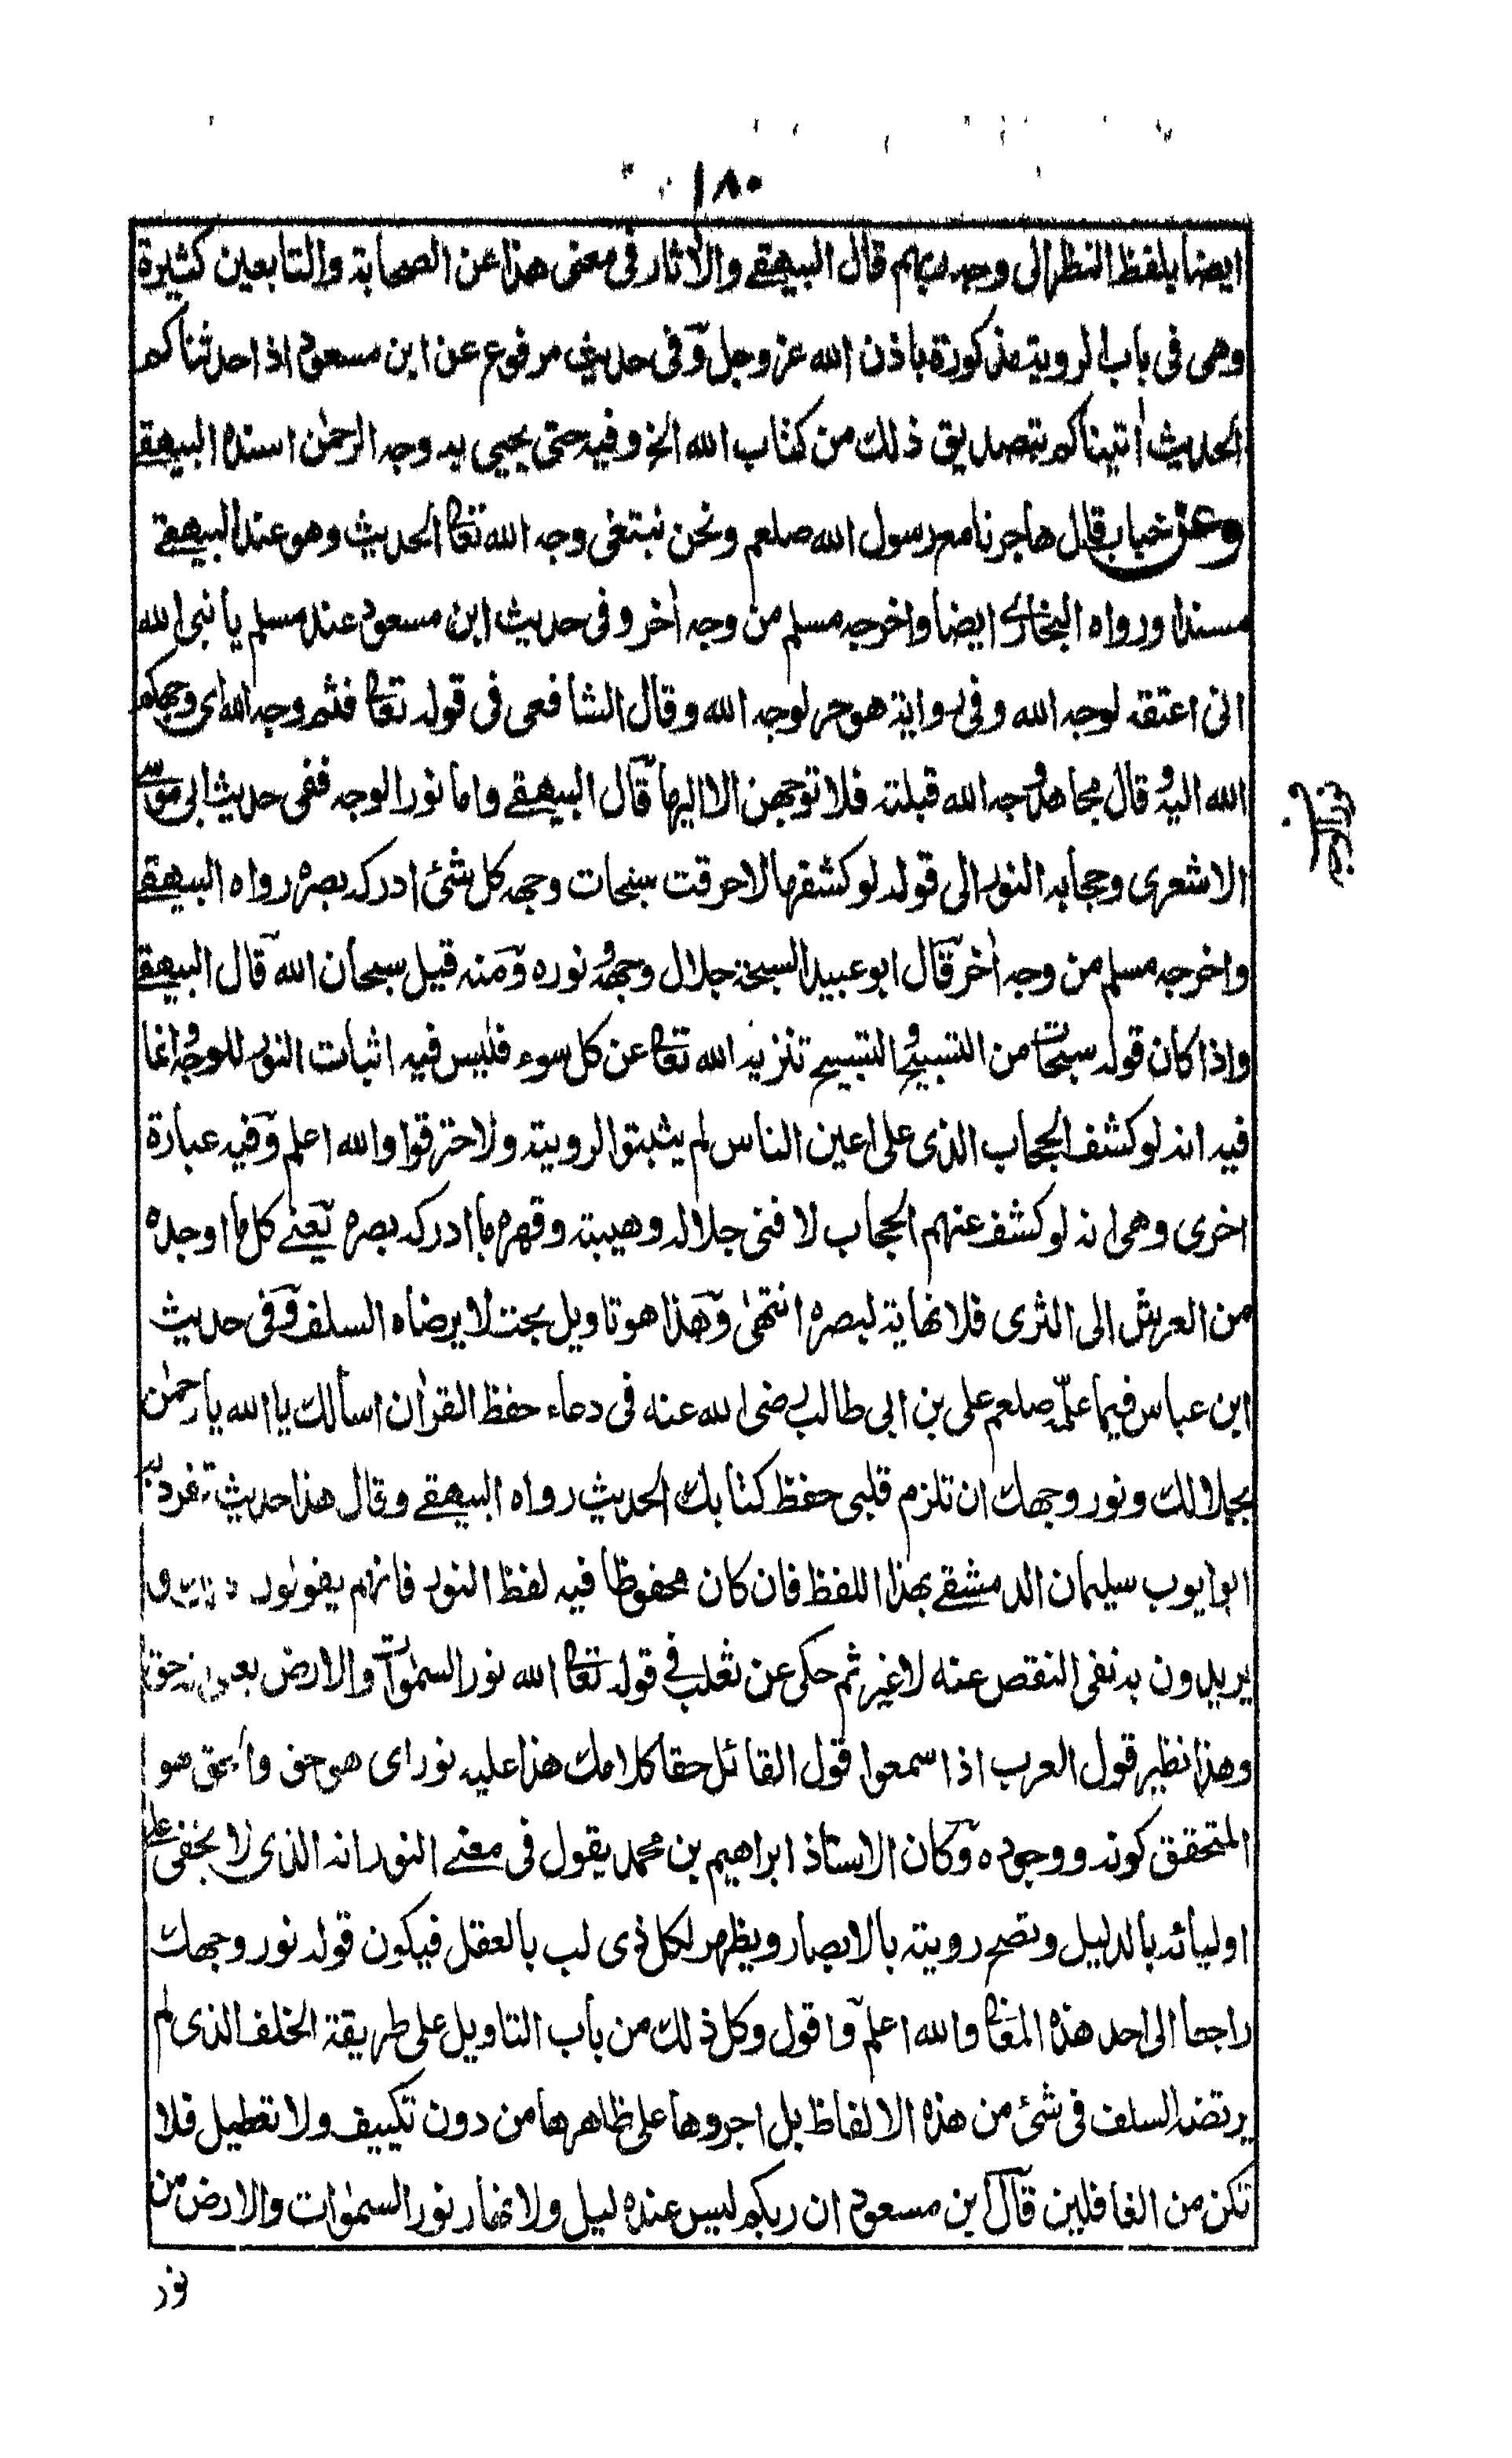 ١٨٠
ايضا بلفظ النظر الى وجه ربهم قال البيهقے والاثار فى معنى هذا عن الصحابة والتابعين كثيرة
وهى فى باب الروية مذكورة باذن الله عز وجل وفى حديث مرفوع عن ابن مسعود اذا حدثناكم
الحديث اتيناكم بتصديق ذلك من كتاب الله الخ وفيه حتى يحيى به وجه الرحمٰن اسنده البيهقے
وعن خباب قال هاجرنا مع رسول الله صلعم ونحن نبتغى وجه الله تعا الحديث وهو عند البيهقے
مسندا ورواه البخارى ايضا واخرجه مسلم من وجه اٰخر وفى حديث ابن مسعود عند مسلم يا نبى الله
انى اعتقه لوجه الله وفى رواية هو حر لوجه الله وقال الشافعى فى قوله تعا فثم وجه الله اى وجهكم
الله اليه وقال مجاهد وجه الله قبلته فلا توجهن الا اليها قال البيهقے واما نور الوجه ففى حديث ابى موسى
الاشعرى وحجابه النور الى قوله لو كشفها لاحرقت سبحات وجهه كل شئ ادركه بصره رواه البيهقے
واخرجه مسلم من وجه اٰخر قال ابو عبيد السبحة جلال وجهه ونوره ومنه قيل سبحان الله قال البيهقے
واذا كان قوله سبحات من التسبيح والتسبيح تنزيه الله تعا عن كل سوء فليس فيه اثبات النور للوجه وانما
فيه انه لو كشف الحجاب الذى على اعين الناس لم يثبتوا لرويته ولاحترقوا والله اعلم وفيه عبارة
اخرى وهى انه لو كشف عنهم الحجاب لا فنى جلاله وهيبته وقهره ما ادركه بصره يعنے كل ما اوجده
من العرش الى الثرى فلا نهاية لبصره انتهى وهذا هو تاويل بحت لا يرضاه السلف وفى حديث
ابن عباس فيما علمه صلعم على بن ابى طالب رضى الله عنه فى دعاء حفظ القراٰن اسألك يا الله يا رحمٰن
بجلالك ونور وجهك ان تلزم قلبى حفظ كتابك الحديث رواه البيهقے وقال هذا حديث تفرد به
ابو ايوب سليمان الدمشقے بهذا اللفظ فان كان محفوظا فيه لفظ النور فانهم يقولون
يريدون به نفى النقص عنه لا غير ثم حكى عن ثعلب فے قوله تعا الله نور السمٰوات والارض يعنى انه حق
وهذا نظير قول العرب اذا سمعوا قول القائل حقا كلامك هذا عليه نور اى هو حق والحق هو
المتحقق كونه ووجوده وكان الاستاذ ابراهيم بن محمد يقول فى معنے النور انه الذى لا يخفى على
اوليائه بالدليل وتصح رويته بالابصار ويظهر لكل ذى لب بالعقل فيكون قوله نور وجهك
راجعا الى احد هذه المعا والله اعلم واقول وكل ذلك من باب التاويل على طريقة الخلف الذى لم
يرتضه السلف فى شئ من هذه الالفاظ بل اجروها على ظاهرها من دون تكييف ولا تعطيل فلا
تكن من الغافلين قال ابن مسعود ان ربكم ليس عنده ليل ولا نهار نور السمٰوات والارض من
نور